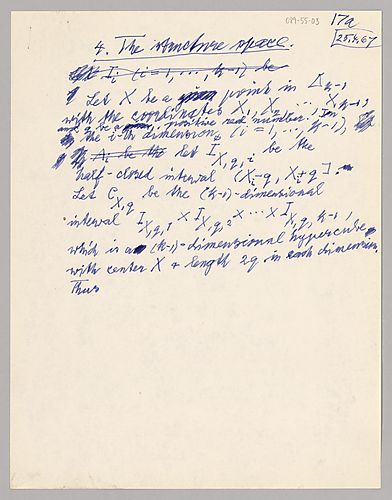 089-55-03
17a
25.4.67
4. The structure space.
I_i (i=1, ..., k-1) be
Let X be a point in Δ_{k-1}
with the coordinates X_1, X_2 ... X_{k-1}
and q be a positive real number. In
the i-th dimension, (i=1, ..., k-1),
let I_{X,q,i} be the
half-closed interval (X_i-q, X_i+q].
Let C_{X,q} be the (k-1)-dimensional
interval I_{X,q,1} × I_{X,q,2} × ... × I_{X,q,k-1},
which is a (k-1)-dimensional hypercube
with center X + length 2q in each dimension.
Thus